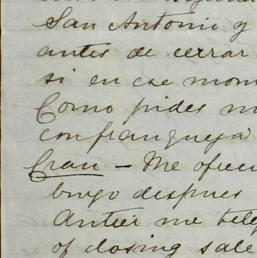 San Antonio y
antes de cerrar
si en ese mom
Como pides m
confianqueza
Cran — Me ofrec
burgo despues
Antier me teleg
of closing sale